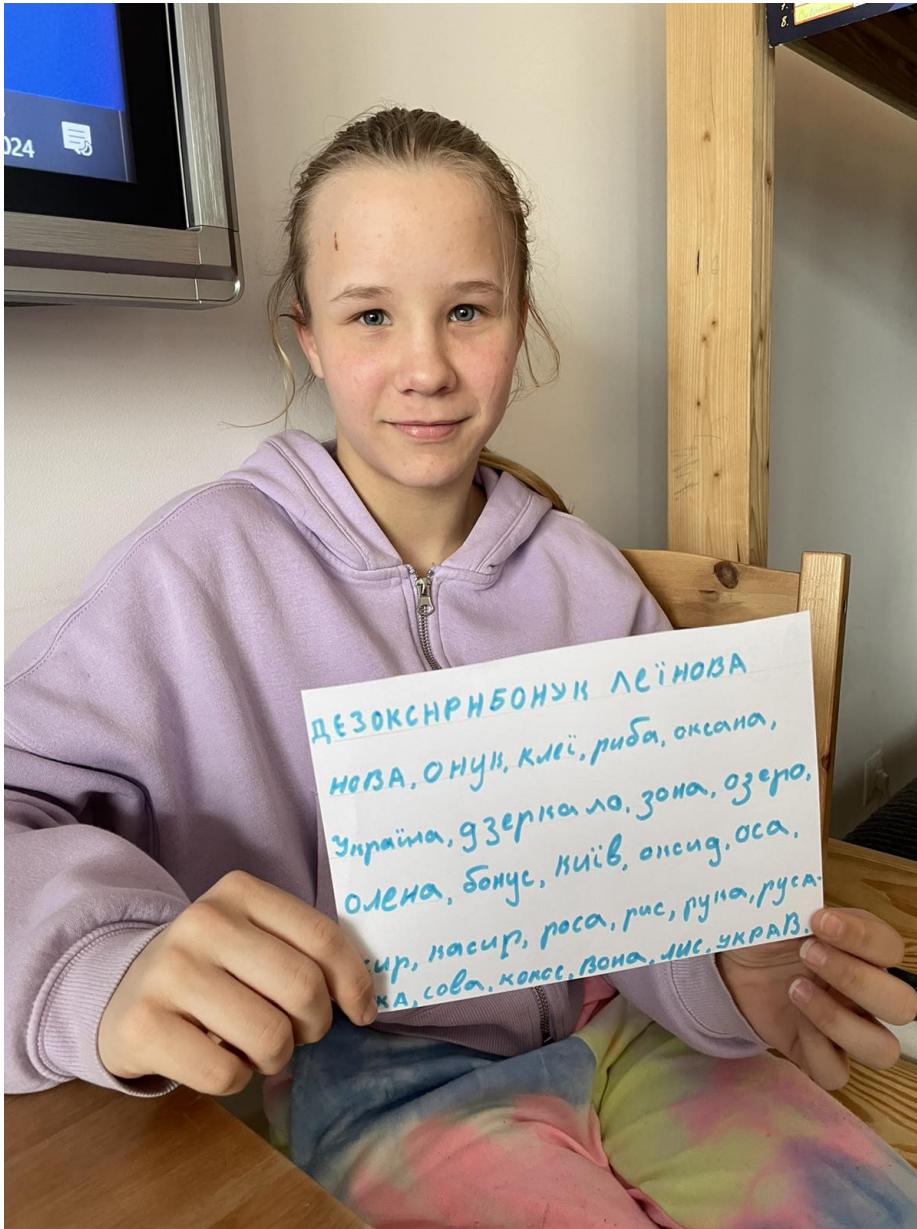 024
8.
ДЕЗОКСНРНБОНУК ЛЕЇНОВА
нова, онук, клеї, риба, оксана,
Україна, дзеркало, зона, озеро,
олена, бонус, київ, оксид, оса,
сир, касир, роса, рис, рука, руса-
ка, сова, кокос, вона, лис, украв.